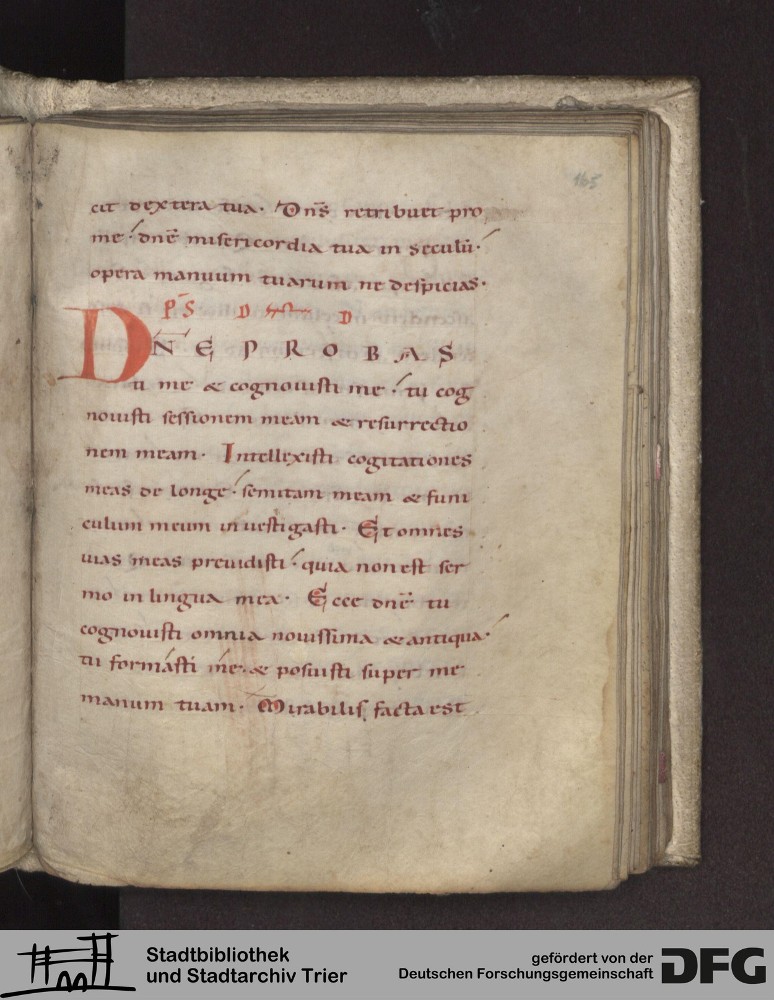 165
cit dextera tua. Dn̄s retribuet pro
me. dn̄e misericordia tua in seculū.
opera manuum tuarum ne despicias.
PS̄ D D
DN̄E PROBAS
ti me & cognouisti me. tu cog
nouisti sessionem meam & resurrectio
nem meam. Intellexisti cogitationes
meas de longe. semitam meam & funi
culum meum inuestigasti. Et omnes
uias meas preuidisti. quia non est ser
mo in lingua mea. Ecce dn̄e tu
cognouisti omnia nouissima & antiqua.
tu formásti mé. & posuisti super me
manum tuam. Mirabilis facta est
Stadtbibliothek
und Stadtarchiv Trier
gefördert von der
Deutschen Forschungsgemeinschaft
DFG